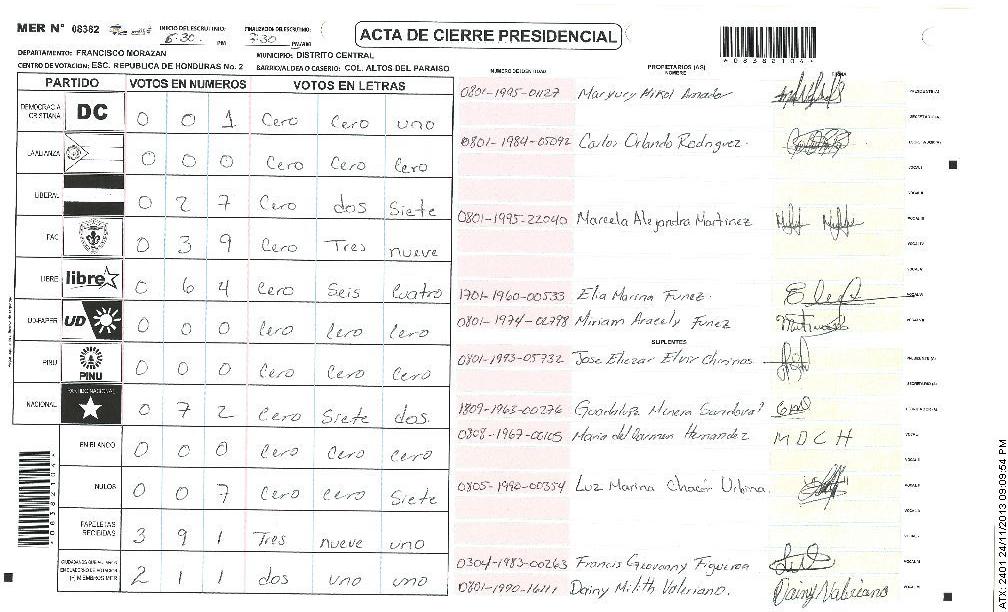 MER N° 08382
INICIO DEL ESCRUTINIO: 6:30 PM
FINALIZACION DEL ESCRUTINIO: 7:30 PM/AM
ACTA DE CIERRE PRESIDENCIAL
*08382104*
DEPARTAMENTO: FRANCISCO MORAZAN
MUNICIPIO: DISTRITO CENTRAL
CENTRO DE VOTACION: ESC. REPUBLICA DE HONDURAS No. 2
BARRIO/ALDEA O CASERIO: COL. ALTOS DEL PARAISO
PARTIDO VOTOS EN NUMEROS VOTOS EN LETRAS
DEMOCRACIA CRISTIANA DC 0 0 1 Cero Cero uno
LA ALIANZA 0 0 0 Cero Cero Cero
LIBERAL 0 2 7 Cero dos Siete
FAC 0 3 9 Cero Tres nueve
LIBRE libre 0 6 4 Cero Seis Cuatro
UD-FAPER UD 0 0 0 Cero Cero Cero
PINU PINU 0 0 0 Cero Cero Cero
NACIONAL PARTIDO NACIONAL 0 7 2 Cero Siete dos
EN BLANCO 0 0 0 Cero Cero Cero
NULOS 0 0 7 Cero cero Siete
PAPELETAS RECIBIDAS 3 9 1 Tres nueve uno
2 1 1 dos uno uno
*08382104*
NUMERO DE IDENTIDAD
PROPIETARIOS (AS)
NOMBRE
FIRMA
0801-1995-01127 Maryury Mikol Amador
0801-1984-05092 Carlos Orlando Rodriguez.
0801-1995-22040 Marcela Alejandra Martinez
1701-1960-00533 Elia Marina Funez.
0801-1974-02798 Miriam Aracely Funez
SUPLENTES
0801-1993-05732 Jose Eliezar Elvir Chirinos
1809-1963-00276 Guadalupe
0808-1967-00105 Maria del Carmen Hernandez M D C H
0805-1990-00354 Luz Marina Chacón Urbina.
0304-1983-00263 Francis Geovanny Figueroa
0801-1990-16111 Dainy Milith Valeriano. Dainy Valeriano
ATX-2401 24/11/2013 09:09:54 PM